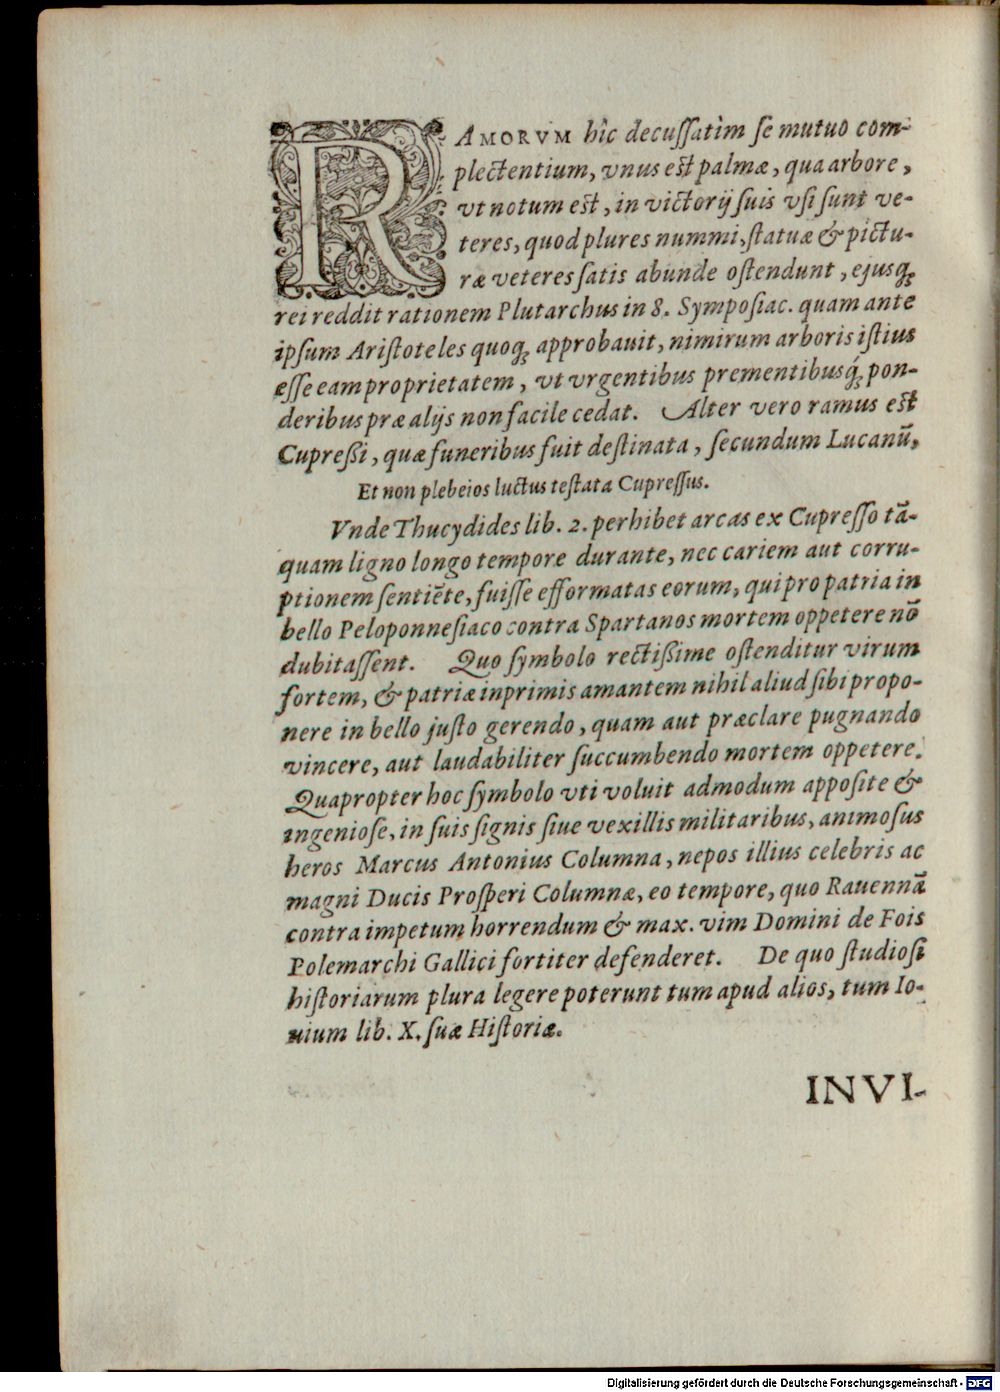 RAMORVM hîc decuſſatìm ſe mutuo com-
plectentium, vnus est palmæ, qua arbore,
vt notum est, in victorijſuis vſi ſunt ve-
teres, quod plures nummi, ſtatuæ & pictu-
ræ veteres ſatis abunde oſtendunt, ejusq;
rei reddit rationem Plutarchus in 8. Sympoſiac. quam ante
ipſum Ariſtoteles quoq; approbauit, nimirum arboris iſtius
eſſe eam proprietatem, vt vrgentibus prementibusq́; pon-
deribus præ alijs non facile cedat. Alter vero ramus est
Cupreßi, quæ funeribus fuit deſtinata, ſecundum Lucanū,
Et non plebeios luctus teſtata Cupreſſus.
Vnde Thucydides lib. 2. perhibet arcas ex Cupreſſo tā-
quam ligno longo tempore durante, nec cariem aut corru-
ptionem ſentiēte, fuiſſe efformatas eorum, qui pro patria in
bello Peloponneſiaco contra Spartanos mortem oppetere nō
dubitaſſent. Quo ſymbolo rectißime oſtenditur virum
fortem, & patriæ inprimis amantem nihil aliud ſibi propo-
nere in bello juſto gerendo, quam aut præclare pugnando
vincere, aut laudabiliter ſuccumbendo mortem oppetere.
Quapropter hoc ſymbolo vti voluit admodum appoſite &
ingenioſe, in ſuis ſignis ſiue vexillis militaribus, animoſus
heros Marcus Antonius Columna, nepos illius celebris ac
magni Ducis Proſperi Columnæ, eo tempore, quo Rauennā
contra impetum horrendum & max. vim Domini de Fois
Polemarchi Gallici fortiter defenderet. De quo ſtudioſi
hiſtoriarum plura legere poterunt tum apud alios, tum Io-
uium lib. X. ſuæ Hiſtoriæ.
INVI-
Digitalisierung gefördert durch die Deutsche Forschungsgemeinschaft - DFG